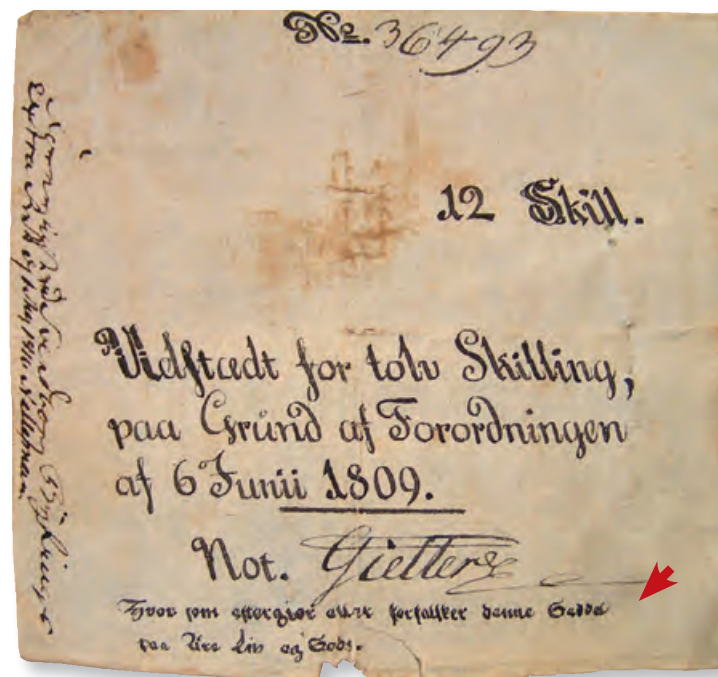 No. 36493
12 Skill.
Udstædt for tolv Skilling,
paa Grund af Forordningen
af 6 Junii 1809.
Not. Gietters
Hvor som eftergiør eller forfalsker denne Seddel
paa Ære Liv og Gods.